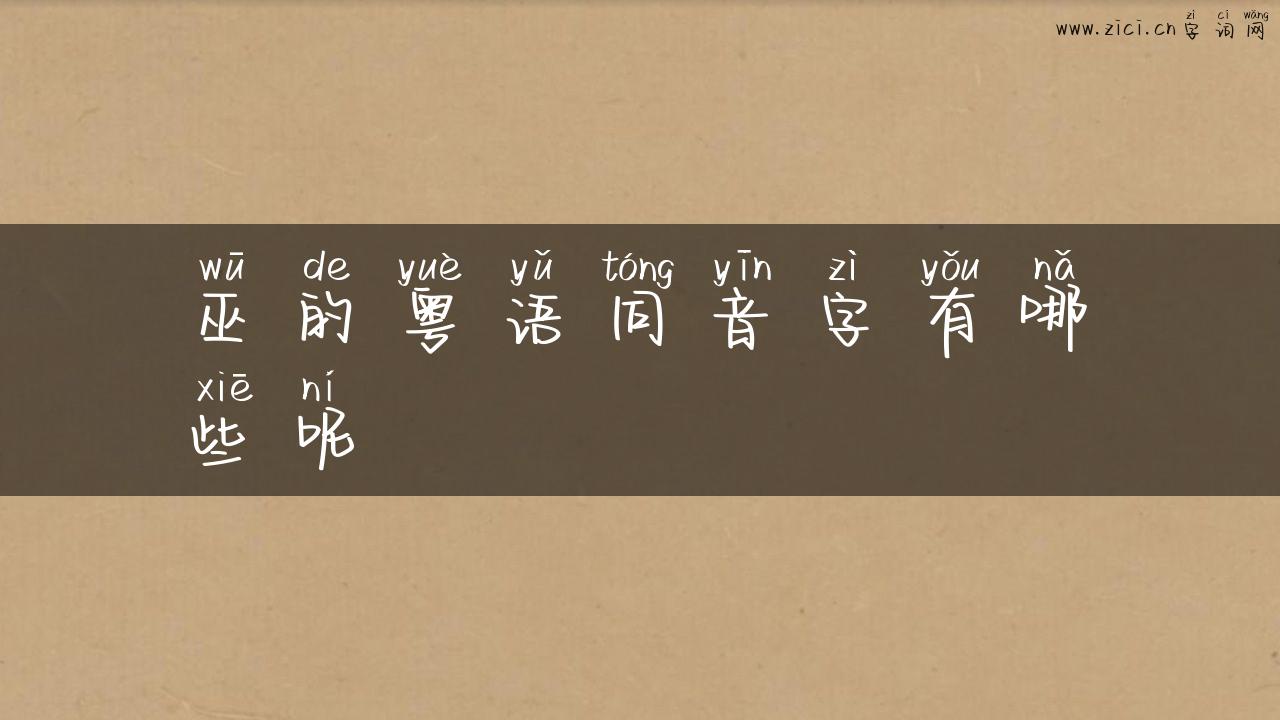 zì cí wǎng
www.zici.cn 字词网
wū de yuè yǔ tóng yīn zì yǒu nǎ
巫的粤语同音字有哪
xiē ní
些呢